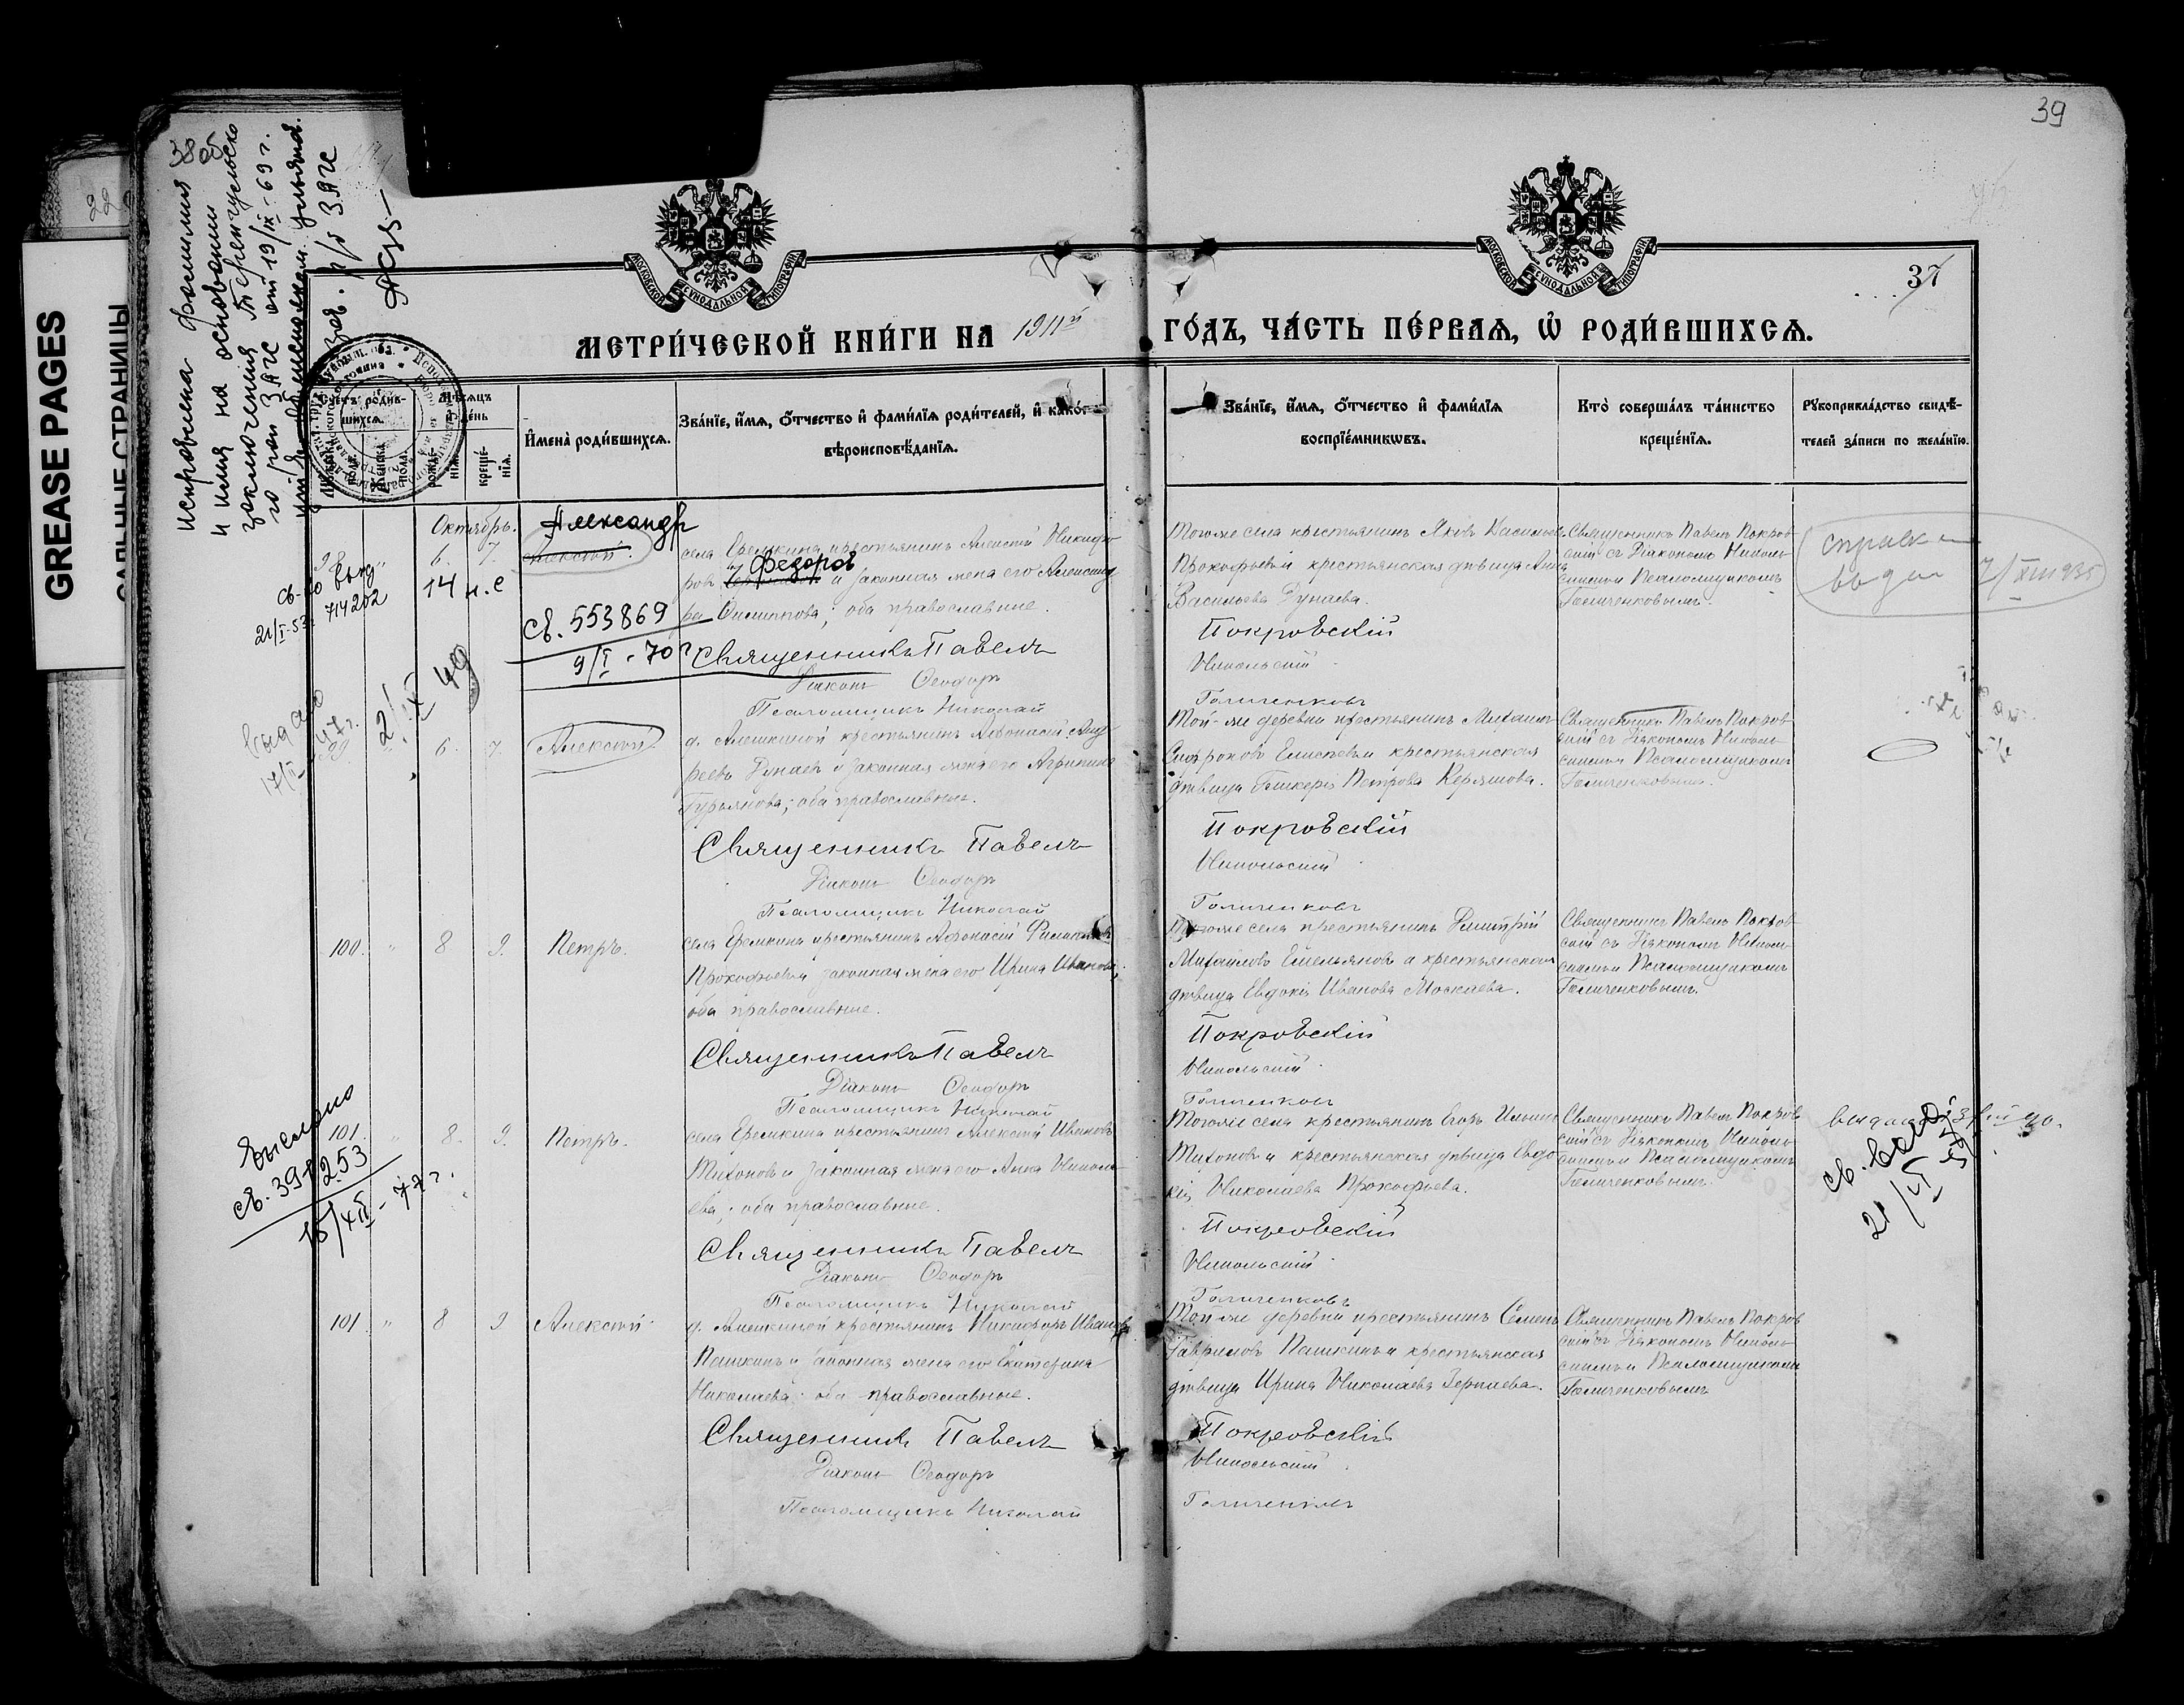 GREASE PAGES
САЛЬНЫЕ СТРАНИЦЫ
22
38об
исправлена фамилия
и имя на основании
заключения Тереньгульско
го рай ЗАГС от 19/IX-69 г.
зав. р/б ЗАГС
39
37
МОСКОВСКОЙ СѴНОДАЛЬНОЙ ТИПОГРАФІИ
МОСКОВСКОЙ СѴНОДАЛЬНОЙ ТИПОГРАФІИ
МЕТРИ́ЧЕСКОЙ КНИ́ГИ НА 1911й
ГО́ДЪ, ЧА́СТЬ ПЕ́РВАѦ, Ѡ҆ РОДИ́ВШИХСѦ.
Счетъ родив-
шихсѧ.
Мѣсѧцъ
и день
рожде-
нїѧ.
креще́-
нїѧ.
И҆мена̀ роди́вшихсѧ.
Зва́нїе, и҆́мѧ, ѻ҆́тчество и҆ фами́лїѧ роди́телей, и҆ како́гѡ
вѣроисповѣ́данїѧ.
Зва́нїе, и҆́мѧ, ѻ҆́тчество и҆ фами́лїѧ
воспрїе́мникѡвъ.
Кто̀ соверша́лъ та́инство
креще́нїѧ.
Рꙋкоприкла́дство свидѣ́-
телей за́писи по жела́нїю.
Октябрь.
Александр
6. 7. Алексѣй.
14 н.с
св-во выд
714202
21/I-53г
св. 553869
9/I-70г
села Еремкина крестьянинъ Алексѣй Никифо
ровъ Федоров и законная жена его Александ
ра Филиппова; оба православные.
Священникъ Павелъ
Діаконъ Ѳеодоръ
Псаломщикъ Николай
Тогоже села крестьянинъ Яковъ Васильевъ
Прокофьевъ и крестьянская дѣвица Анна
Васильева Дунаева.
Покровскій
Никольскій.
Голиченковъ
Священникъ Павелъ Покров
скій съ Діакономъ Николь
скимъ и Псаломщикомъ
Голиченковымъ.
справка
выдан 7/XII 1935
выдано
17/II-47г.
2/IX 49
99 6. 7. Алексѣй.
д. Алешкиной крестьянинъ Аѳонасій Анд
реевъ Дунаевъ и законная жена его Агрипина
Гурьянова; оба православные.
Священникъ Павелъ
Діаконъ Ѳеодоръ
Псаломщикъ Николай
Той-же деревни крестьянинъ Михаилъ
Софроновъ Елисеевъ и крестьянская
дѣвица Гликерія Петрова Керяшова.
Покровскій
Никольскій.
Голиченковъ
Священникъ Павелъ Покров
скій съ Діакономъ Николь
скимъ и Псаломщикомъ
Голиченковымъ.
100. " 8 9. Петръ.
села Еремкина крестьянинъ Аѳонасій Филипповъ
Прокофьевъ и законная жена его Ирина Иванова;
оба православные.
Священникъ Павелъ
Діаконъ Ѳеодоръ
Псаломщикъ Николай
Тогоже села крестьянинъ Димитрій
Михайловъ Емельяновъ и крестьянская
дѣвица Евдокія Иванова Москаева.
Покровскій
Никольскій.
Голиченковъ
Священникъ Павелъ Покров
скій съ Діакономъ Николь
скимъ и Псаломщикомъ
Голиченковымъ.
выслано
св. 398253
15/XII-77г.
101. " 8. 9. Петръ.
села Еремкина крестьянинъ Алексѣй Ивановъ
Тихоновъ и законная жена его Анна Никола
ева; оба православные.
Священникъ Павелъ
Діаконъ Ѳеодоръ
Псаломщикъ Николай
Тогоже села крестьянинъ Егоръ Ильинъ
Тихоновъ и крестьянская дѣвица Евдо
кія Николаева Прокофьева.
Покровскій
Никольскій.
Голиченковъ
Священникъ Павелъ Покров
скій съ Діакономъ Николь
скимъ и Псаломщикомъ
Голиченковымъ.
св. выд
21/VI
101 " 8 9 Алексѣй.
д. Алешкиной крестьянинъ Никифоръ Ивановъ
Пашкинъ и законная жена его Екатерина
Николаева; оба православные.
Священникъ Павелъ
Діаконъ Ѳеодоръ
Псаломщикъ Николай
Той же деревни крестьянинъ Семенъ
Гавриловъ Пашкинъ и крестьянская
дѣвица Ирина Николаева
Покровскій
Никольскій.
Голиченковъ
Священникъ Павелъ Покров
скій съ Діакономъ Николь
скимъ и Псаломщикомъ
Голиченковымъ